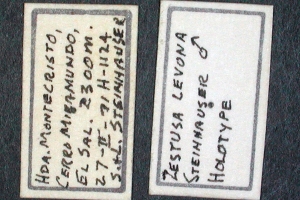 HDA. MONTECRISTO,
CERRO MIRAMUNDO,
EL SAL. 2300M.
27-III-71 H-1124
S.+L. STEINHAUSER
ZESTUSA LEVONA
STEINHAUSER ♂
HOLOTYPE